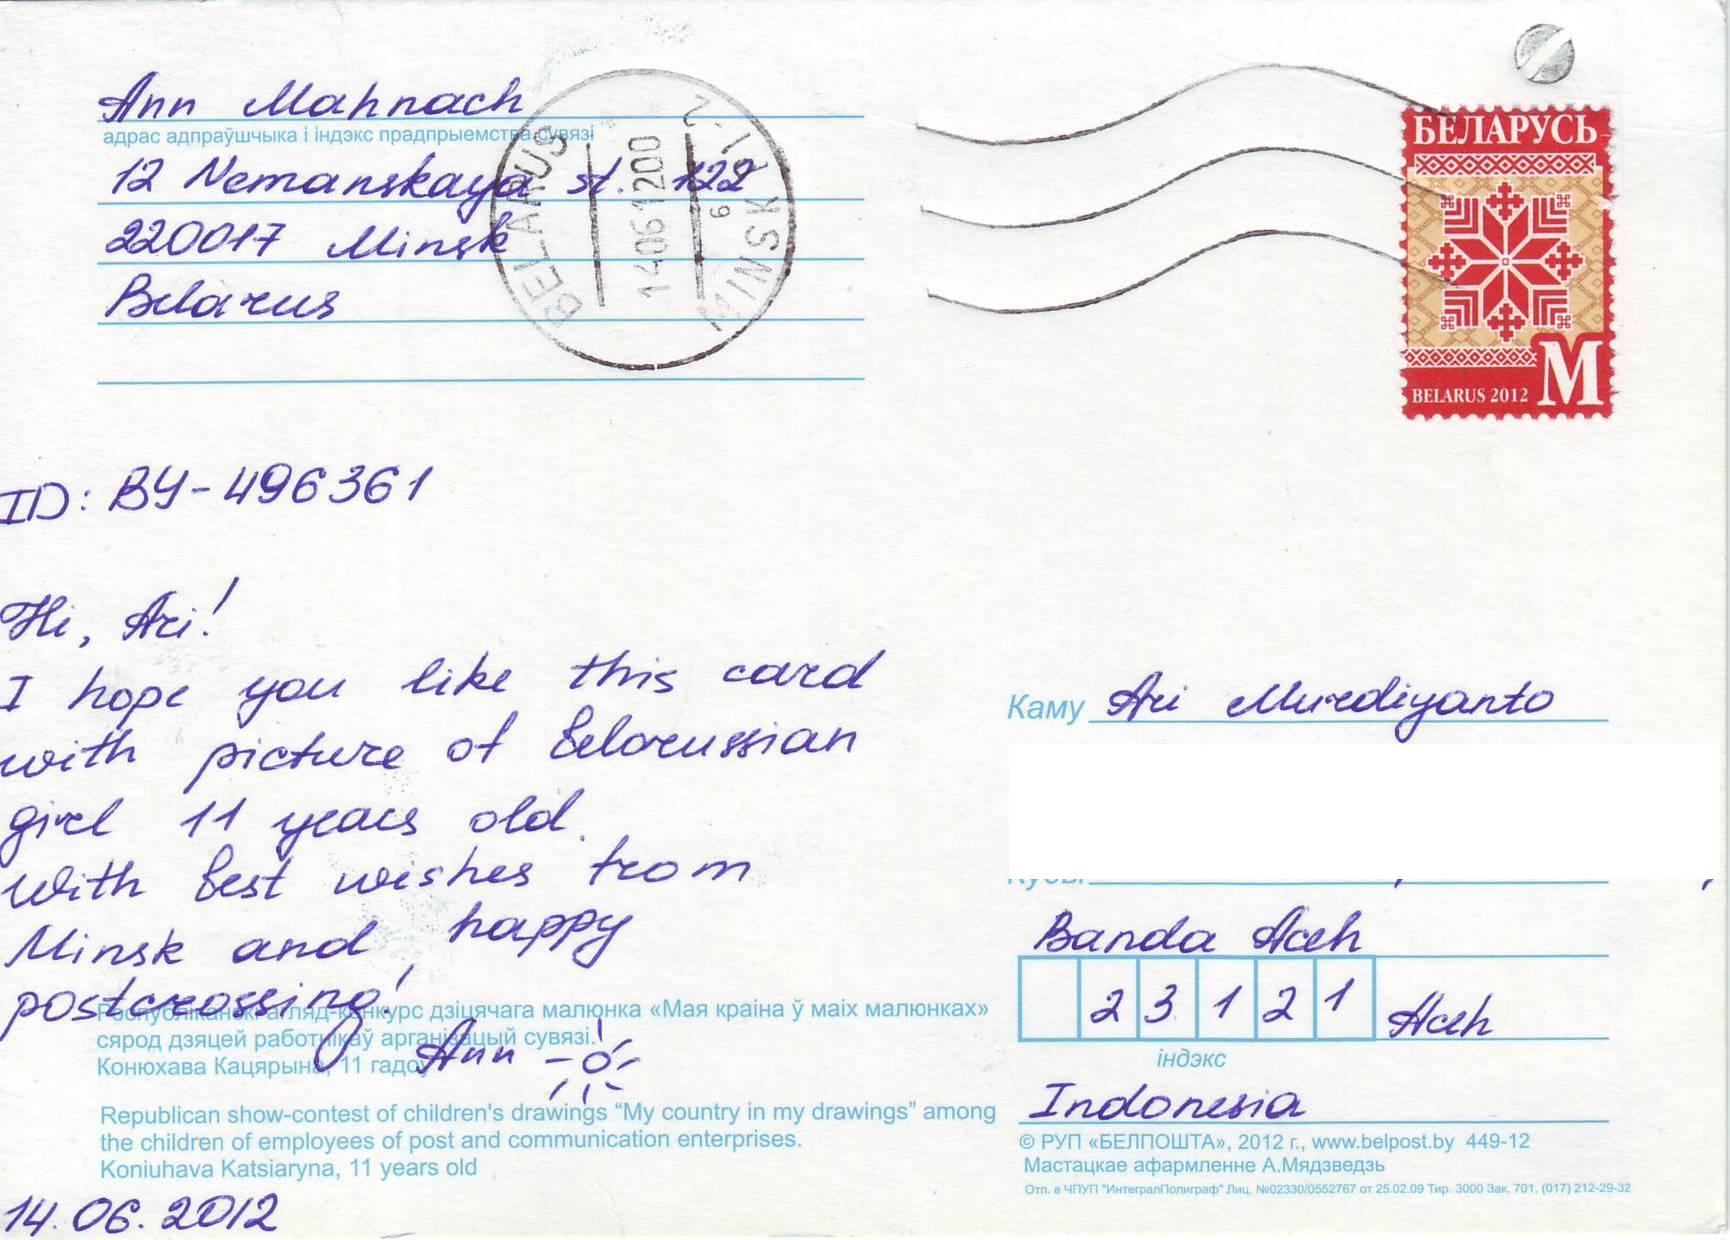 Ann Mahnach
адрас адпраўшчыка і індэкс прадпрыемства сувязі
12 Nemanskaya st. 122
220017 Minsk
Belarus
BELARUS
14061200
MINSK
БЕЛАРУСЬ
M
BELARUS 2012
ID: BY-496361
Hi, Ari!
I hope you like this card
with picture of belorussian
girl 11 years old.
With best wishes from
Minsk and happy
postcrossing!
Ann
Рэспубліканскі агляд-конкурс дзіцячага малюнка «Мая краіна ў маіх малюнках»
сярод дзяцей работнікаў арганізацый сувязі.
Конюхава Кацярына, 11 гадоў
Republican show-contest of children's drawings “My country in my drawings” among
the children of employees of post and communication enterprises.
Koniuhava Katsiaryna, 11 years old
14.06.2012
Каму Ari Murdiyanto
Banda Aceh
23121 Aceh
індэкс
Indonesia
© РУП «БЕЛПОШТА», 2012 г., www.belpost.by 449-12
Мастацкае афармленне А.Мядзведзь
Отп. в ЧПУП "ИнтегралПолиграф" Лиц. №02330/0552767 от 25.02.09 Тир. 3000 Зак. 701, (017) 212-29-32